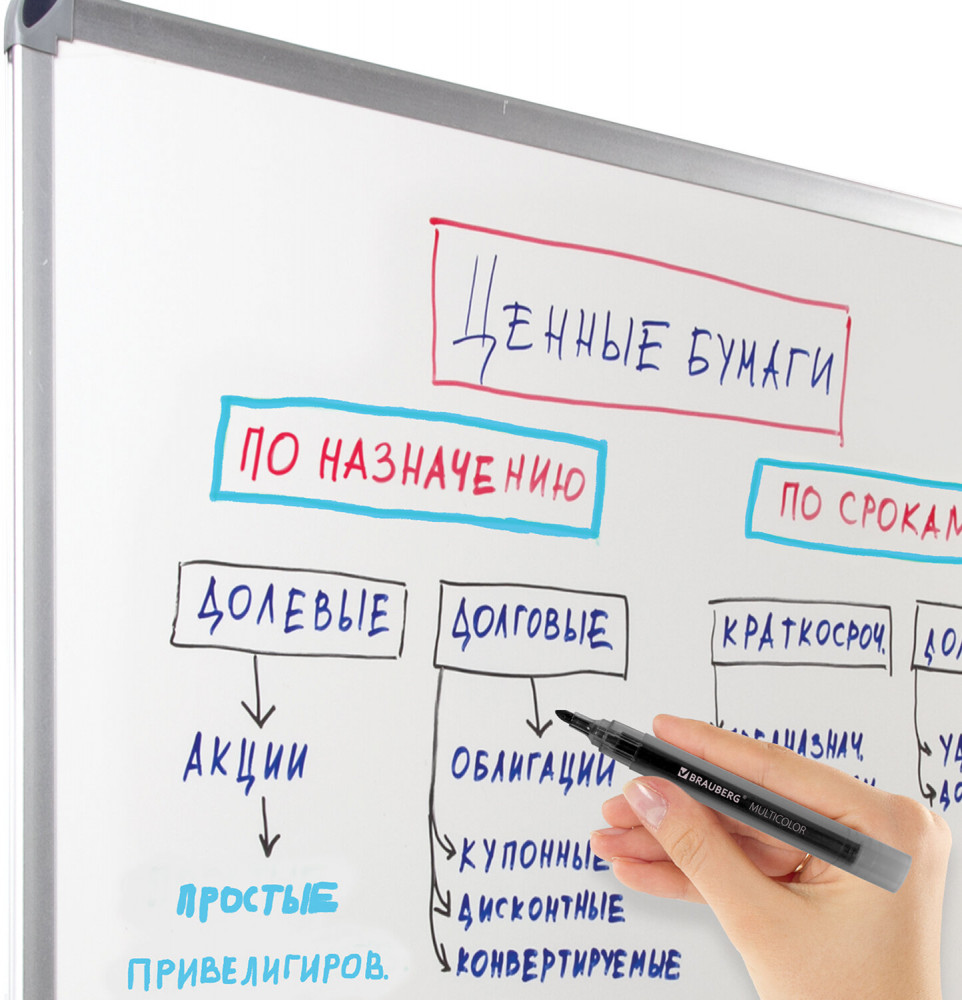 ЦЕННЫЕ БУМАГИ
ПО НАЗНАЧЕНИЮ
ПО СРОКАМ
ДОЛЕВЫЕ
ДОЛГОВЫЕ
КРАТКОСРОЧ.
АКЦИИ
ОБЛИГАЦИИ
ПРОСТЫЕ
ПРИВЕЛИГИРОВ.
КУПОННЫЕ
ДИСКОНТНЫЕ
КОНВЕРТИРУЕМЫЕ
BRAUBERG MULTICOLOR